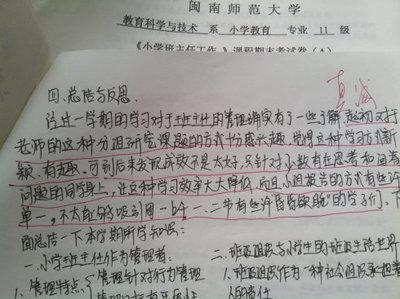 闽南师范大学
教育科学与技术 系 小学教育 专业 11 级
《小学班主任工作 》课程期末考试卷(A)
真诚
四.总结与反思.
经过一学期的学习对于班主任的管理确实有了一些了解,起初对于
老师的这种分组研究课题的方式十分感兴趣,觉得这种学习方式新
颖、有趣,可到后来发现成效不是太好,只针对小数有在思考和
问题的同学身上,让这种学习效率大大降低,而且小组报告的方式有些许
单一,不太能够吸引周一b4 一、二节有些许昏昏欲睡"的学子们,下
面总结一下本学期所学知识:
一.小学班主任作为管理者:
1.管理特点:管理针对行为管理
二、班级组织与小学生的班级生活世界
1.班级组织作为一种社会组织承担着
人的责任